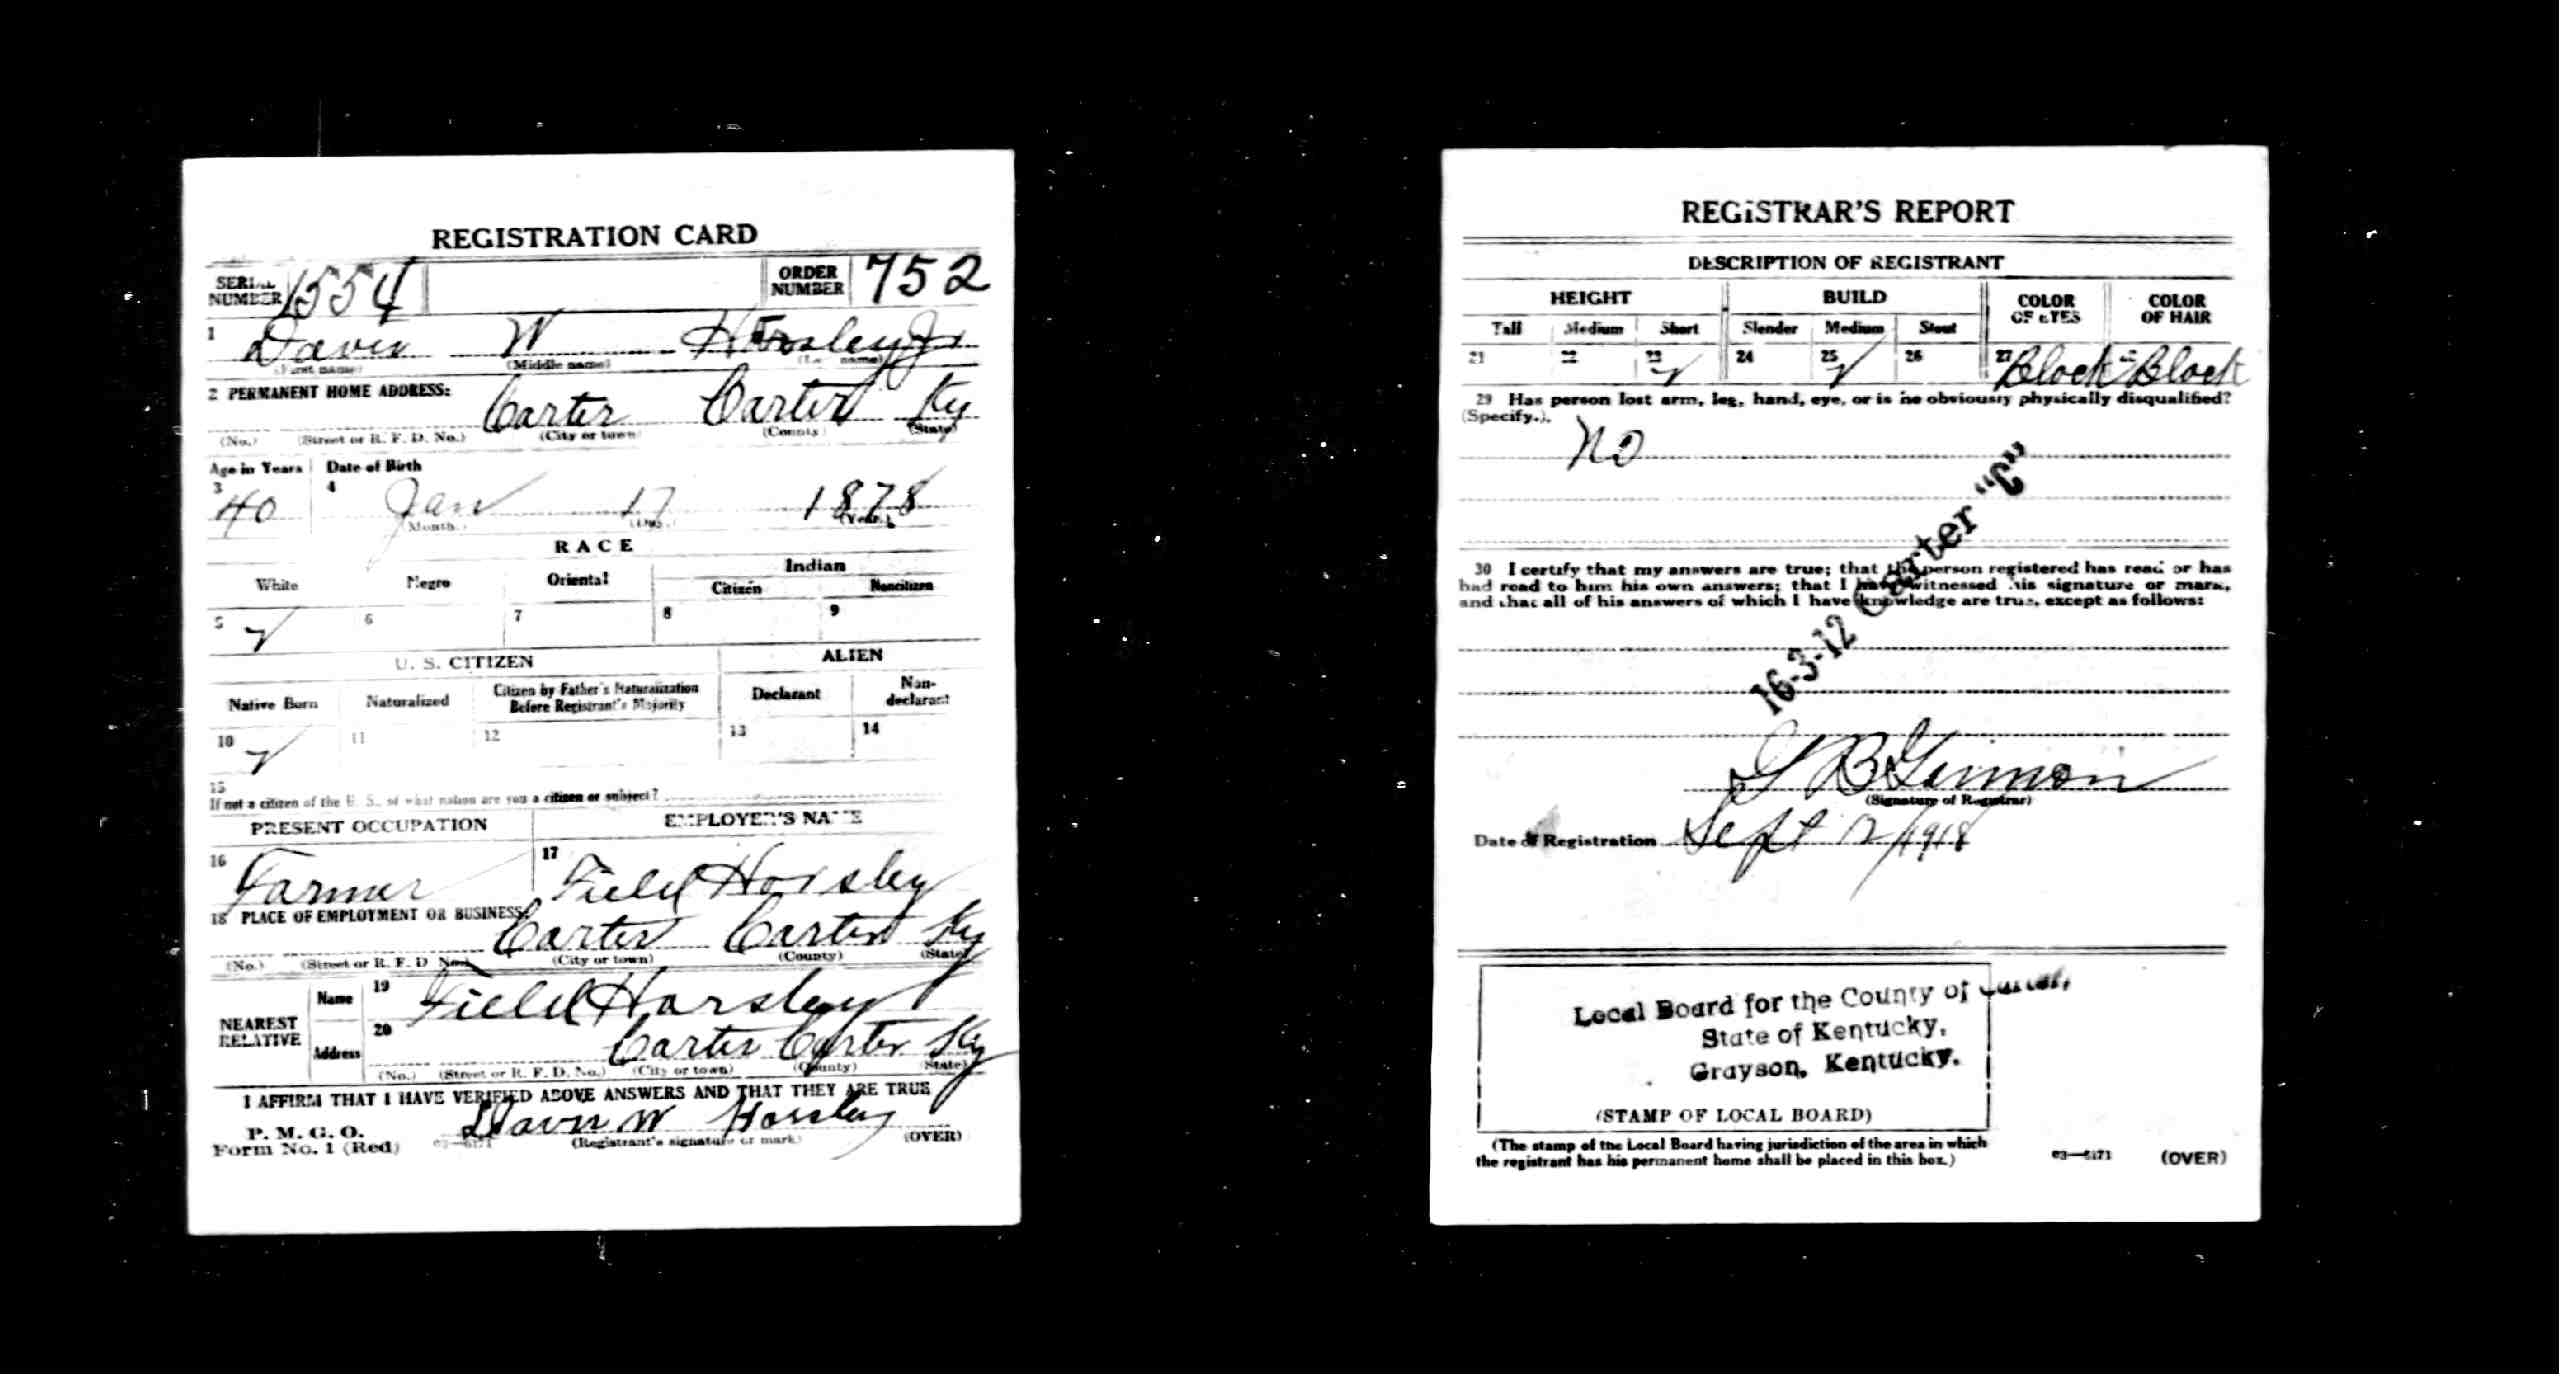 REGISTRATION CARD
SERIAL NUMBER 1554 ORDER NUMBER 752
1 Davis W Horsley Jr
(First name) (Middle name) (Last name)
2 PERMANENT HOME ADDRESS:
Carter Carter Ky
(No.) (Street or R. F. D. No.) (City or town) (County) (State)
Age in Years Date of Birth
3 40 4 Jan 17 1878
(Month.) (Day.) (Year.)
RACE
White Negro Oriental Indian
Citizen Noncitizen
5 ✓ 6 7 8 9
U. S. CITIZEN ALIEN
Native Born Naturalized Citizen by Father's Naturalization Before Registrant's Majority Declarant Non-declarant
10 ✓ 11 12 13 14
15
If not a citizen of the U. S., of what nation are you a citizen or subject?
PRESENT OCCUPATION EMPLOYER'S NAME
16 Farmer 17 Field Horsley
18 PLACE OF EMPLOYMENT OR BUSINESS:
Carter Carter Ky
(No.) (Street or R. F. D. No.) (City or town) (County) (State)
NEAREST RELATIVE Name 19 Field Horsley
Address 20 Carter Carter Ky
(No.) (Street or R. F. D. No.) (City or town) (County) (State)
I AFFIRM THAT I HAVE VERIFIED ABOVE ANSWERS AND THAT THEY ARE TRUE
P. M. G. O.
Form No. 1 (Red) 03—6171 Davis W Horsley
(Registrant's signature or mark) (OVER)
REGISTRAR'S REPORT
DESCRIPTION OF REGISTRANT
HEIGHT BUILD COLOR OF EYES COLOR OF HAIR
Tall Medium Short Slender Medium Stout
21 22 23 ✓ 24 25 ✓ 26 27 Black 28 Black
29 Has person lost arm, leg, hand, eye, or is he obviously physically disqualified?
(Specify.).
No
16-3-12 Carter "C"
30 I certify that my answers are true; that the person registered has read or has
had read to him his own answers; that I have witnessed his signature or mark,
and that all of his answers of which I have knowledge are true, except as follows:
B
(Signature of Registrar)
Date of Registration Sept 12/1918
Local Board for the County of Carter,
State of Kentucky,
Grayson, Kentucky.
(STAMP OF LOCAL BOARD)
(The stamp of the Local Board having jurisdiction of the area in which
the registrant has his permanent home shall be placed in this box.)
03—6171 (OVER)